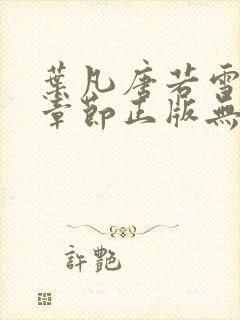 葉凡唐若雪
章節正版無
許艷